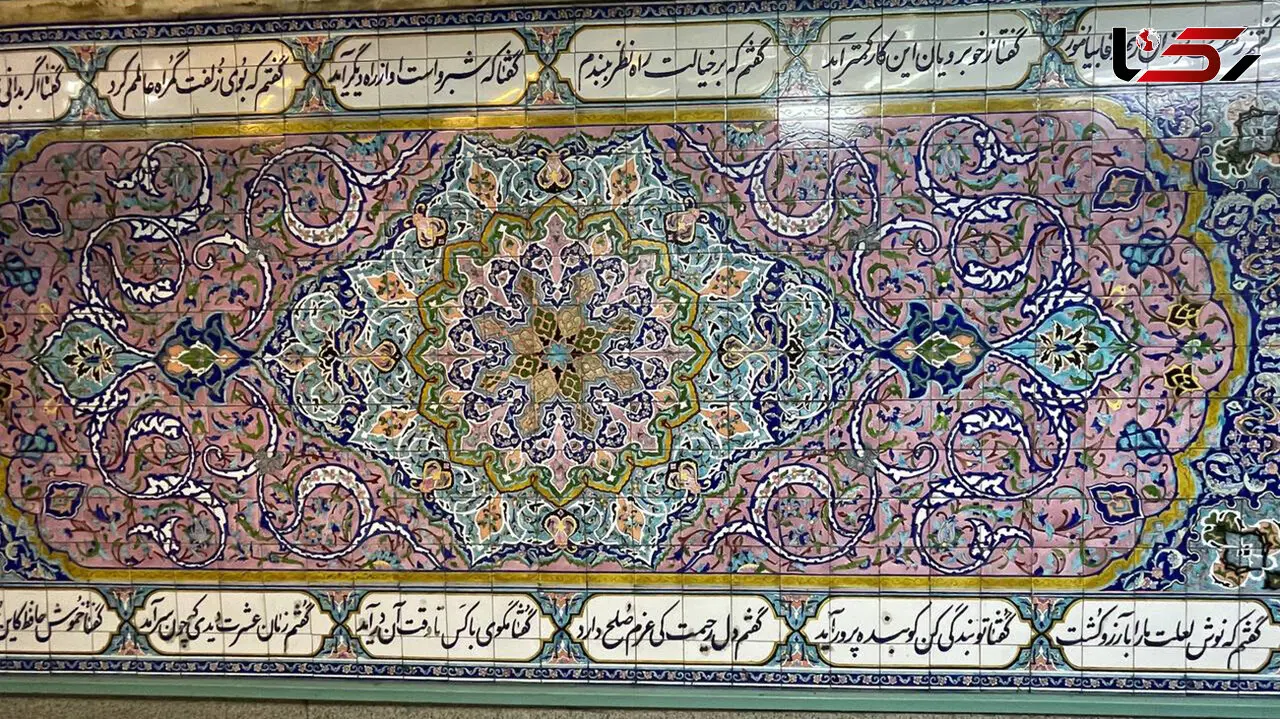 رکنا
گفتم ز بیاموز گفتا ز خوبرویان این کار کمتر آید گفتم که بر خیالت راه نظر ببندم گفتا که شبرو است او از ره دیگر آید گفتم که بوی زلفت گمراه عالمم کرد گفتا اگر بدانی
گفتم که نوش لعلت ما را با آرزو کشت گفتا تو بندگی کن کو بنده پرور آید گفتم دل رحیمت کی عزم صلح دارد گفتا مگوی با کس تا وقت آن درآید گفتم زمان عشرت دیدی که چون سر آمد گفتا خموش حافظ کاین